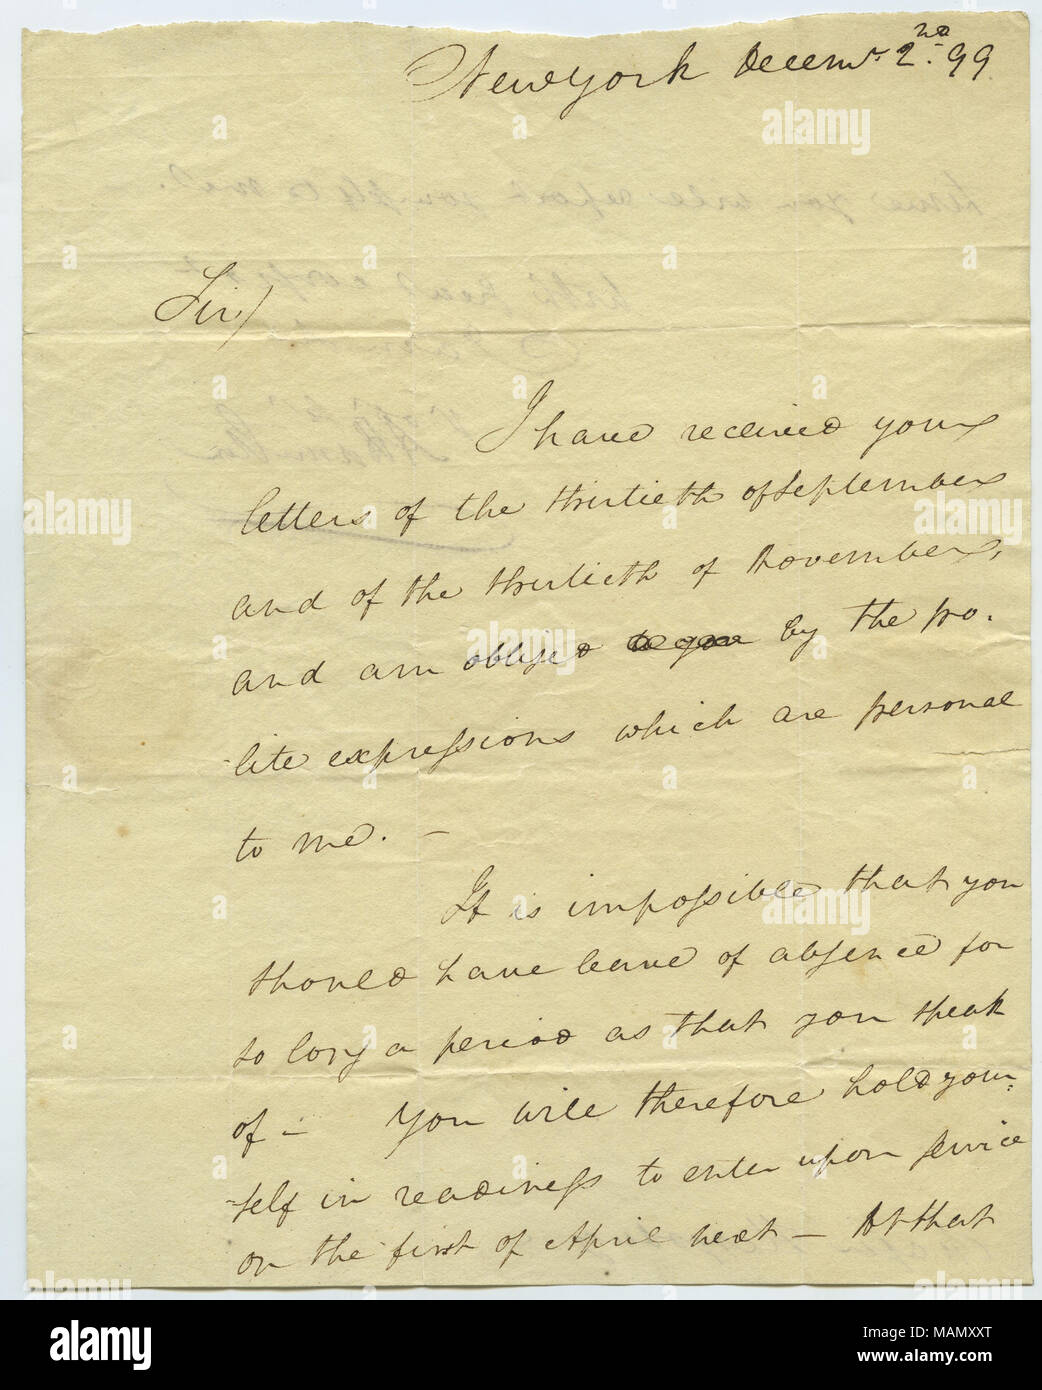 New York Decemr. 2nd. 99
Sir/
I have received your
letters of the thirtieth of September
and of the thirtieth of November,
and am obliged to you by the po-
-lite expressions which are personal
to me. —
It is impossible that you
should have leave of absence for
so long a period as that you speak
of — You will therefore hold your=
-self in readiness to enter upon service
on the first of April next — At that
time you will report yourself to me. —
With great
A Hamilton
alamy
Image ID: MAMXXT
www.alamy.com